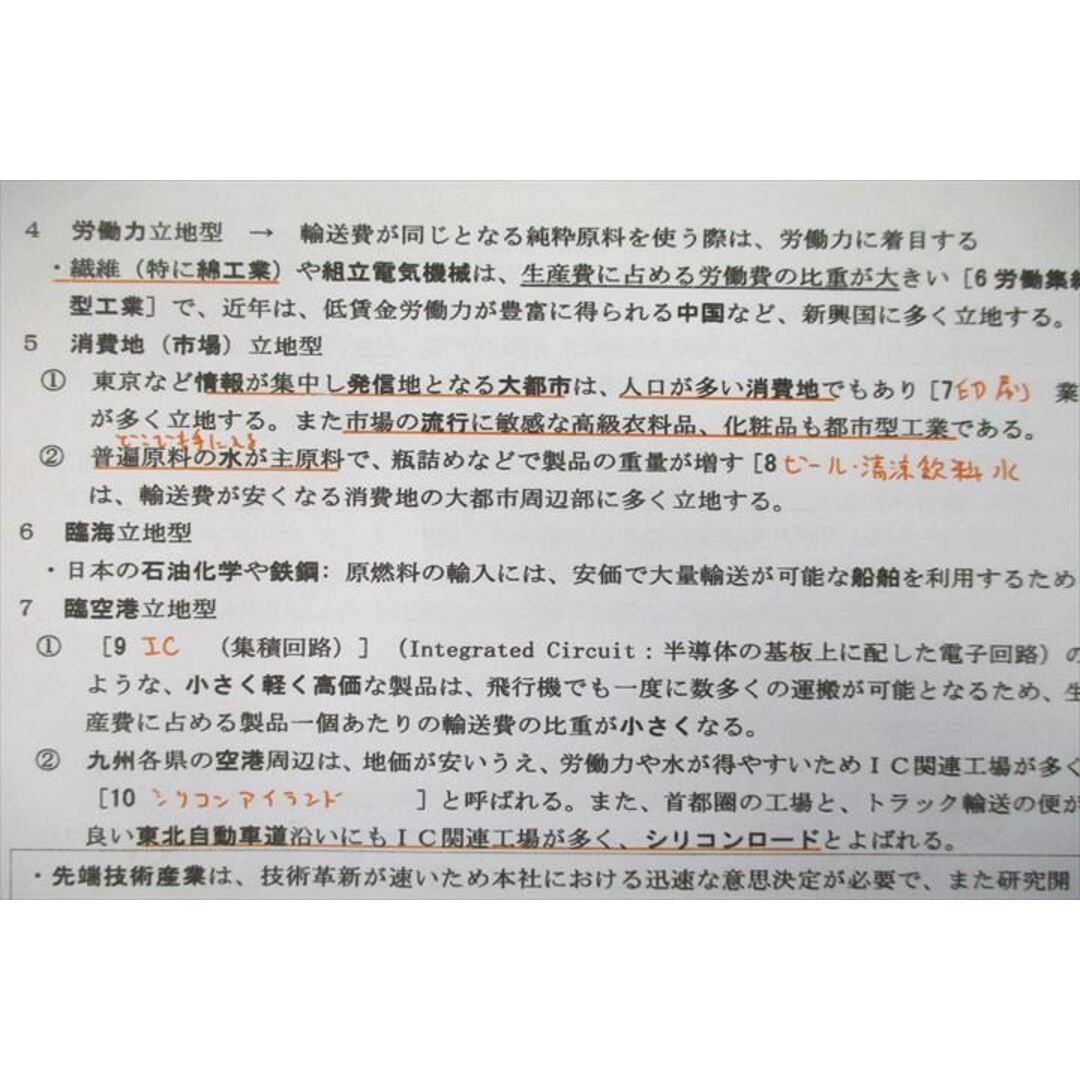 4 労働力立地型 → 輸送費が同じとなる純粋原料を使う際は、労働力に着目する
・繊維（特に綿工業）や組立電気機械は、生産費に占める労働費の比重が大きい［6 労働集約
型工業］で、近年は、低賃金労働力が豊富に得られる中国など、新興国に多く立地する。
5 消費地（市場）立地型
① 東京など情報が集中し発信地となる大都市は、人口が多い消費地でもあり［7印刷 業
が多く立地する。また市場の流行に敏感な高級衣料品、化粧品も都市型工業である。
どこでも手に入る
② 普遍原料の水が主原料で、瓶詰めなどで製品の重量が増す［8ビール・清涼飲料水
は、輸送費が安くなる消費地の大都市周辺部に多く立地する。
6 臨海立地型
・日本の石油化学や鉄鋼：原燃料の輸入には、安価で大量輸送が可能な船舶を利用するため
7 臨空港立地型
① ［9 IC （集積回路）］（Integrated Circuit：半導体の基板上に配した電子回路）の
ような、小さく軽く高価な製品は、飛行機でも一度に数多くの運搬が可能となるため、生
産費に占める製品一個あたりの輸送費の比重が小さくなる。
② 九州各県の空港周辺は、地価が安いうえ、労働力や水が得やすいためＩＣ関連工場が多く
［10 シリコンアイランド ］と呼ばれる。また、首都圏の工場と、トラック輸送の便が
良い東北自動車道沿いにもＩＣ関連工場が多く、シリコンロードとよばれる。
・先端技術産業は、技術革新が速いため本社における迅速な意思決定が必要で、また研究開